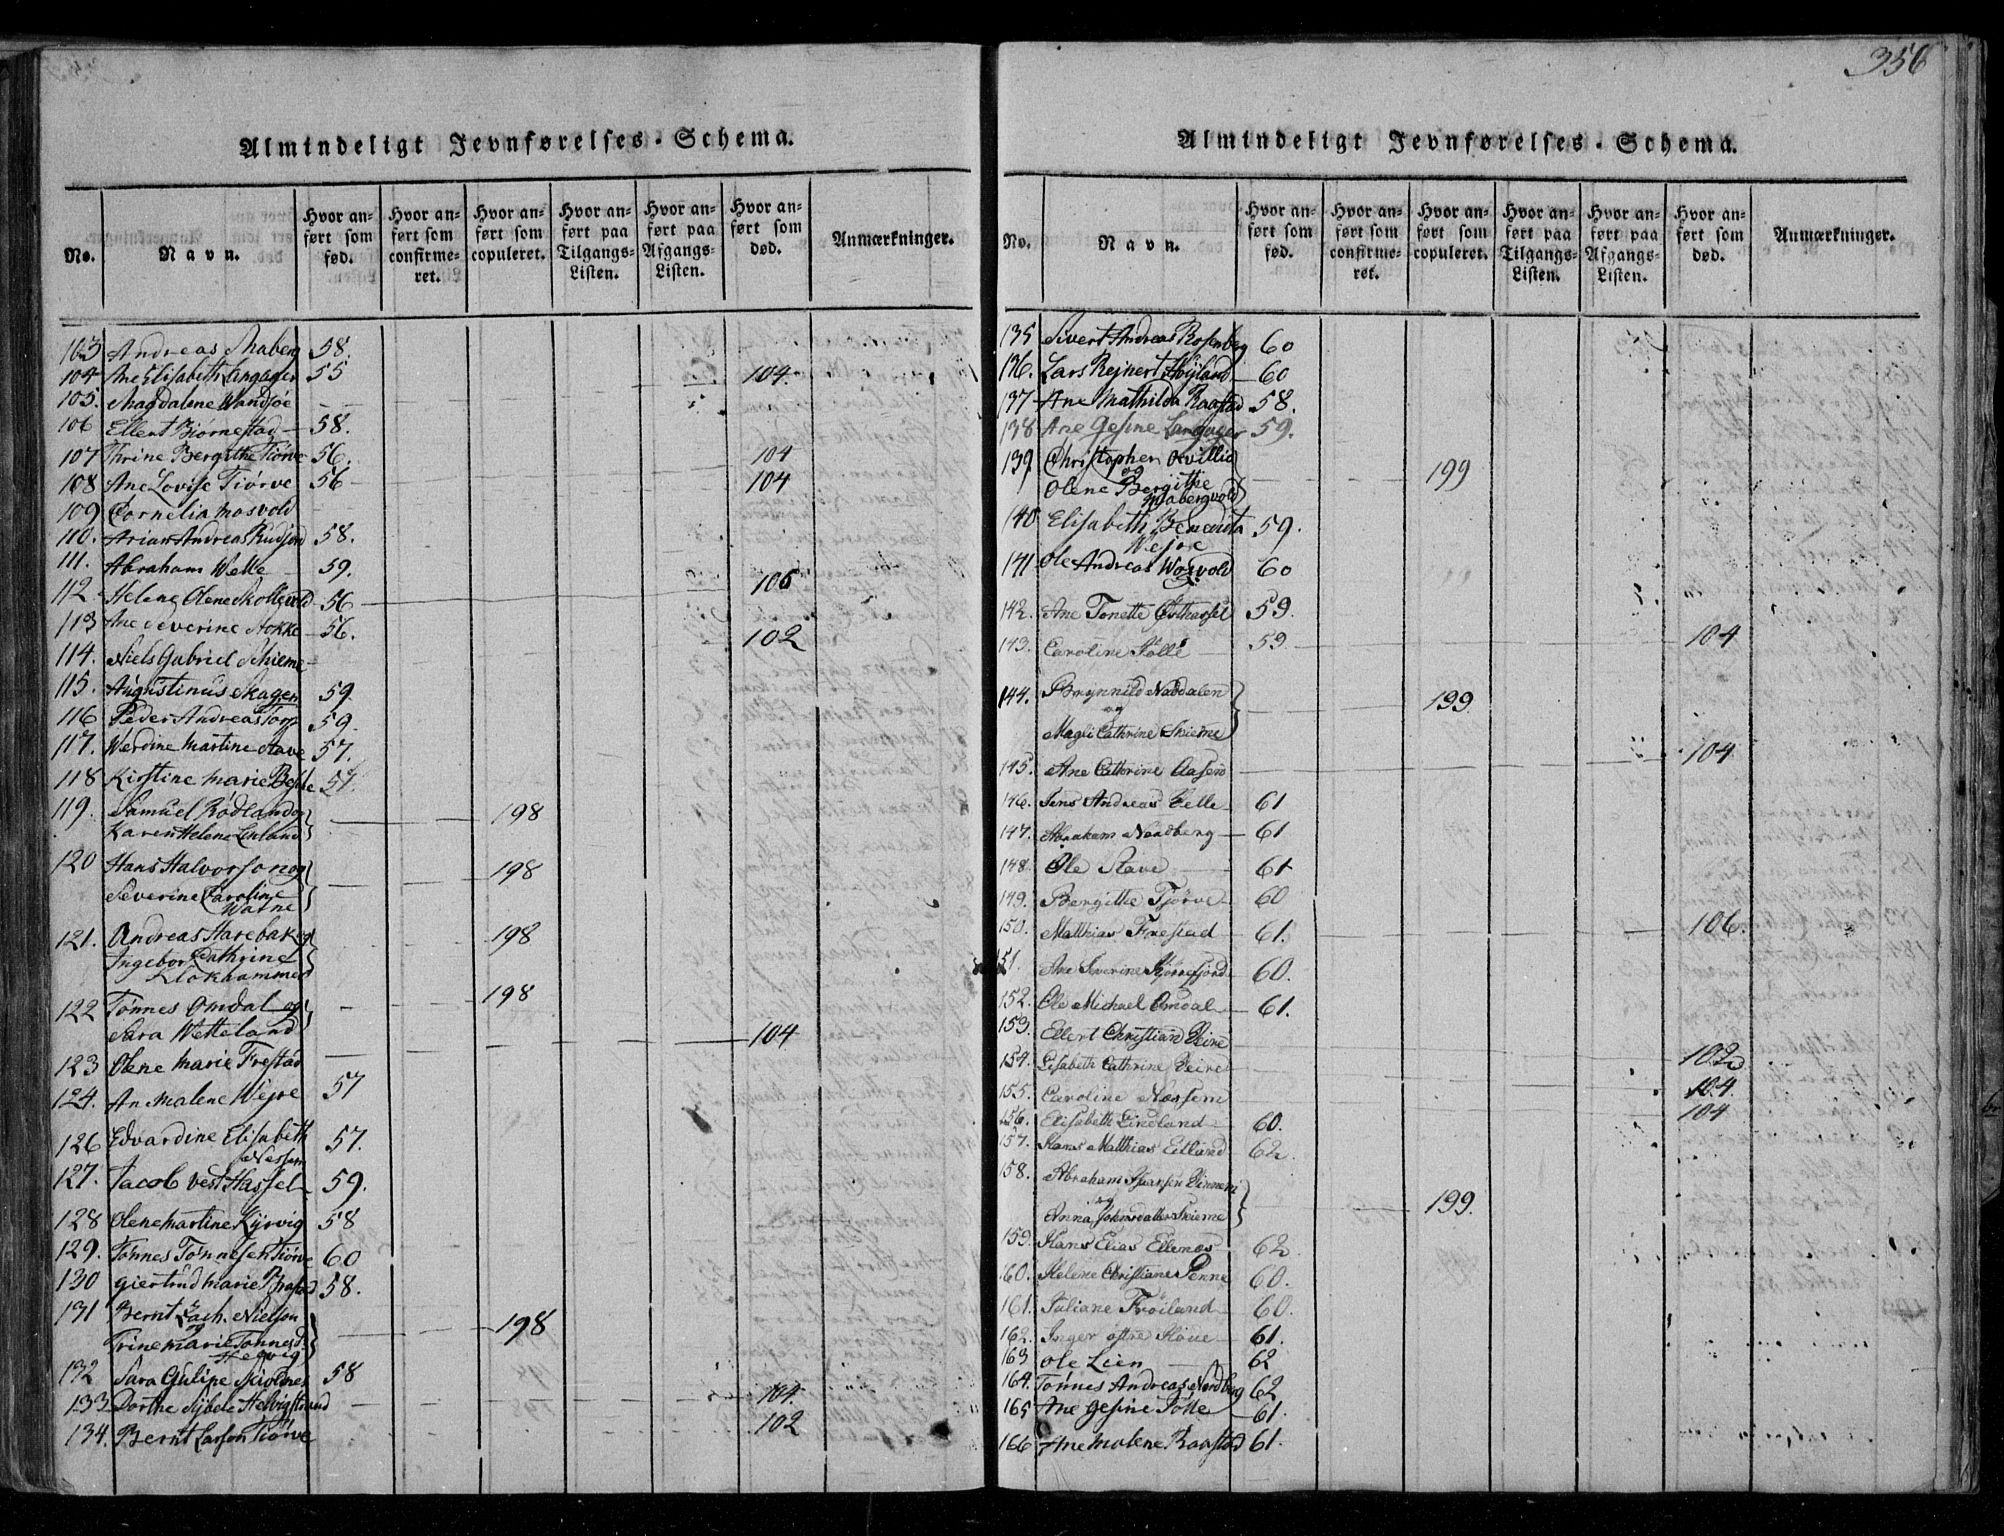 356
Almindeligt Jevnførelses-Schema.
No.
Navn.
Hvor anført som fød.
Hvor anført som confirmeret.
Hvor anført som copuleret.
Hvor anført paa Tilgangs-Listen.
Hvor anført paa Afgangs-Listen.
Hvor anført som død.
Anmærkninger.
103 Andreas Skaberg 58.
104 Ane Elisabeth Langager 55 104.
105. Magdalene Wandsøe
106 Ellert Biørnestad 58.
107 Thrine Bergithe Tiørve 56. 104
108 Ane Lovise Tiørve 56 104
109 Cornelia Mosvold
110. Arian Andreas Rudjord 58.
111. Abraham Welle 59.
112 Helene Olene Skollevold 56 105
113 Ane Severine Stokke 56.
114. Niels Gabriel Skieme 102
115. Augustinus Skagen 59
116 Peder Andreas Torp 59.
117. Werdine Martine Stave 57.
118 Kirstine Marie 57.
119. Samuel Rødland og
Karen Helene Linland 198
120 Hans Halvorson og 198
Severine Caroline
Warne
121. Andreas Harebak og 198
Ingebor Cathrine
Klokhammer
122 Tønnes Omdal og 198
Sara Wetteland
123 Olene Marie Frestad 104
124. An Malene Wejre 57
126 Edvardine Elisabeth 57.
Nessen
127. Jacob vest Hassel 59.
128 Olene Martine Kjrvig 58
129. Tønnes Tønnesen Tiørve 60
130 Giertrud Marie 58.
131 Bernt Zach. Nielson
og
Trine Marie Tønnesd. 198
Helvig
132 Sara Gulipe Skiolnes 58
133 Dorthe Sybele Helvigstrand 104.
134. Bernt Larson Tiørve 102
Almindeligt Jevnførelses-Schema.
No.
Navn.
Hvor anført som fød.
Hvor anført som confirmeret.
Hvor anført som copuleret.
Hvor anført paa Tilgangs-Listen.
Hvor anført paa Afgangs-Listen.
Hvor anført som død.
Anmærkninger.
135 Sivert Andreas Rosenberg 60
136. Lars Rejnert Højland 60
137 Ane Mathilda Raastad 58.
138 Ane Gesine Langager 59.
139 Christopher Qvillid
og
Olene Bergithe 199
Skabergvold
140 Elisabeth Benedicta 59.
Wejre
141 Ole Andreas Wosvold 60
142. Ane Tonette Østhassel 59.
143. Caroline Tolle 59 104
144. Brynnild Naddalen
og 199
Magli Cathrine Skieme
145. Ane Cathrine Aasen 104
146. Jens Andreas Velle 61
147. Abraham Nordberg 61
148. Ole Stave 61
149. Bergithe Tjørve 60
150. Matthias Frestad 61. 106.
151. Ane Severine 60.
152. Ole Michael Omdal 61.
153. Ellert Christian Veire
154. Lisabeth Cathrine Veire 102
155. Caroline Næssem 104
156. Elisabeth Lindland 60. 104
157. Hans Matthias Eitland 62.
158. Abraham Isaaksen
og
Anna Johnsdatter Skieme 199.
159. Hans Elias Ellenæs 62
160. Helene Christiane Penne 60.
161. Juliane Frøiland 60.
162. Inger østre Høue 61.
163 Ole Lien 62
164. Tønnes Andreas Nordberg 62
165 Ane Gesine Tolle 61.
166 Ane Malene Raastad 61.